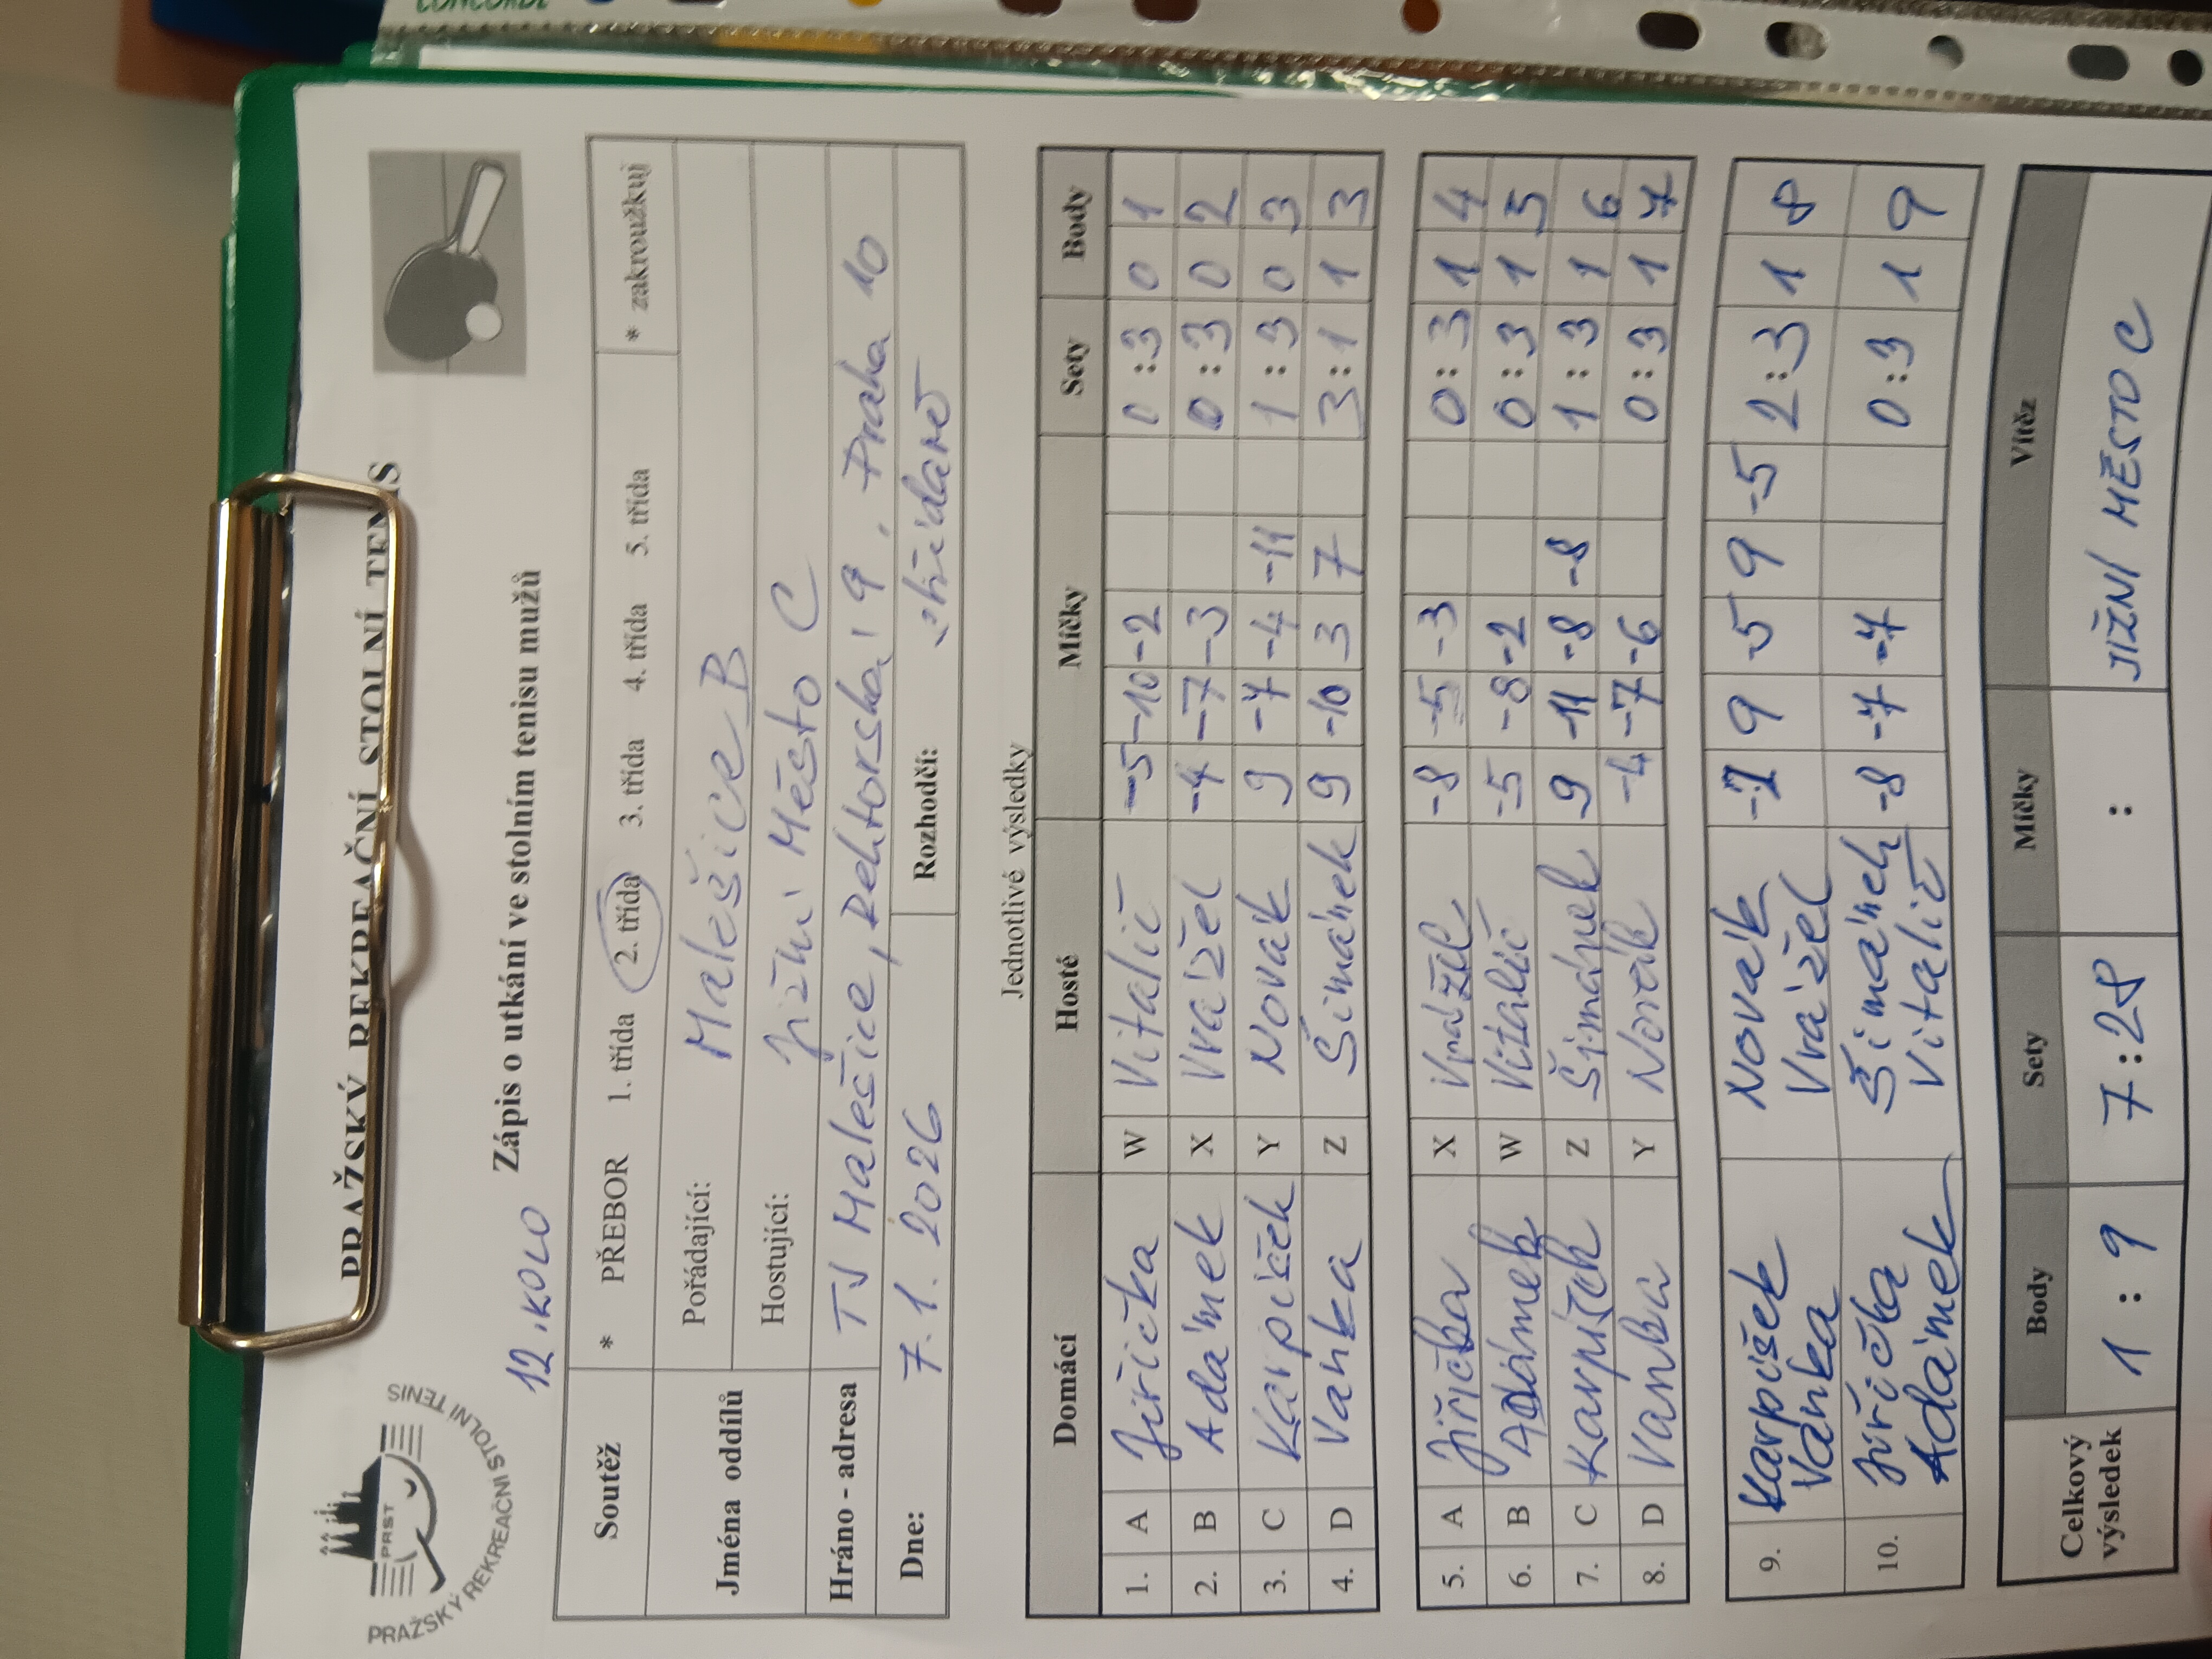 CONCORDE
PRAŽSKÝ REKREAČNÍ STOLNÍ TENIS
PRST
PRAŽSKÝ REKREAČNÍ STOLNÍ TENIS
12. KOLO
Zápis o utkání ve stolním tenisu mužů
Soutěž * PŘEBOR 1. třída 2. třída 3. třída 4. třída 5. třída * zakroužkuj
Jména oddílů Pořádající: Malešice B
Hostující: Jižní Město C
Hráno - adresa TJ Malešice, Rektorská 9, Praha 10
Dne: 7.1.2026 Rozhodčí: střídavě
Jednotlivé výsledky
Domácí Hosté Míčky Sety Body
1. A Jiřička W Vitalič -5 -10 -2 0:3 0 1
2. B Adámek X Vrážel -4 -7 -3 0:3 0 2
3. C Karpíšek Y Novák 9 -7 -4 -11 1:3 0 3
4. D Vaňka Z Šimánek 9 -10 3 7 3:1 1 3
5. A Jiřička X Vrážel -8 -5 -3 0:3 1 4
6. B Adámek W Vitalič -5 -8 -2 0:3 1 5
7. C Karpíšek Z Šimánek 9 -11 -8 -8 1:3 1 6
8. D Vaňka Y Novák -4 -7 -6 0:3 1 7
9. Karpíšek Novák 9 -5 9 -5 2:3 1 8
Vaňka Vrážel
10. Jiřička Šimánek -8 -7 -7 0:3 1 9
Adámek Vitalič
Celkový výsledek Body Sety Míčky Vítěz
1:9 7:28 : JIŽNÍ MĚSTO C